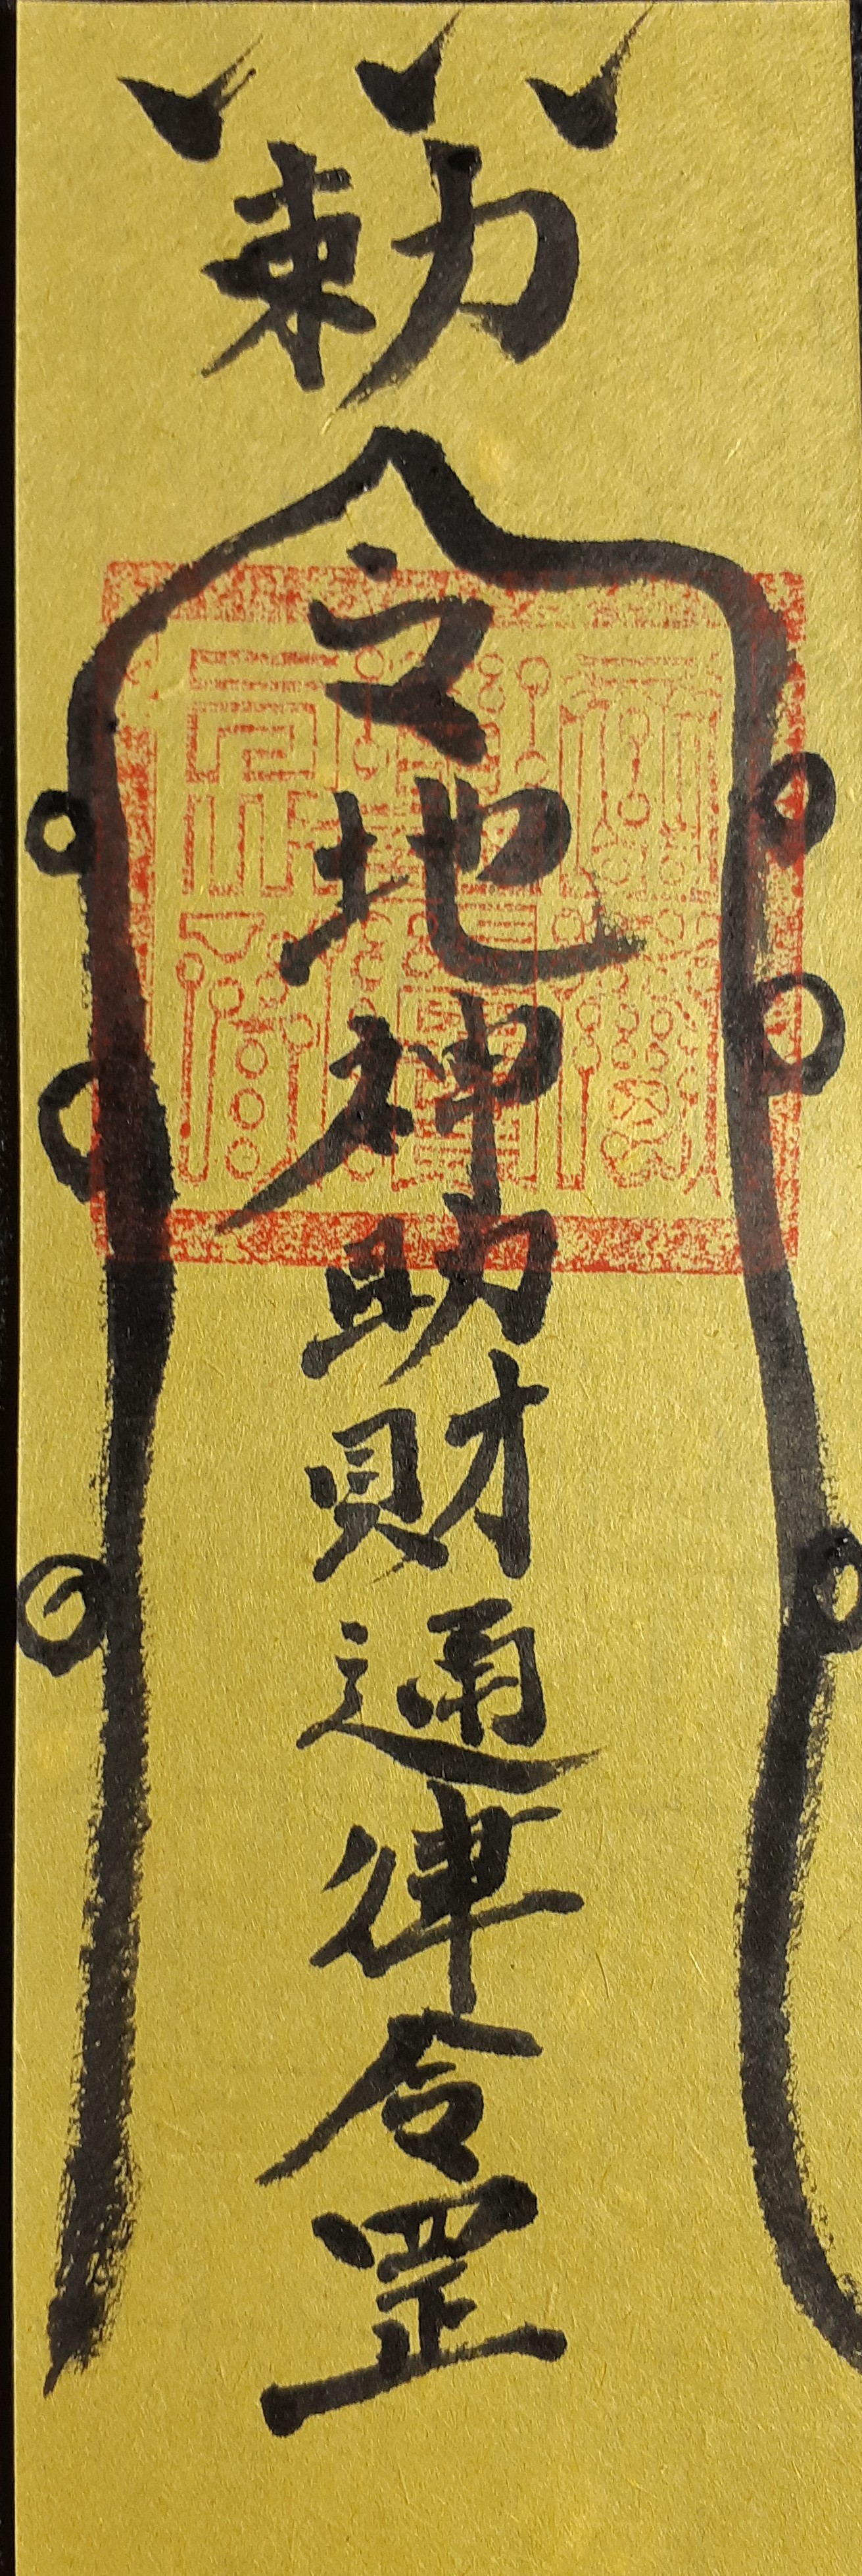 勅令地神助財通律令罡